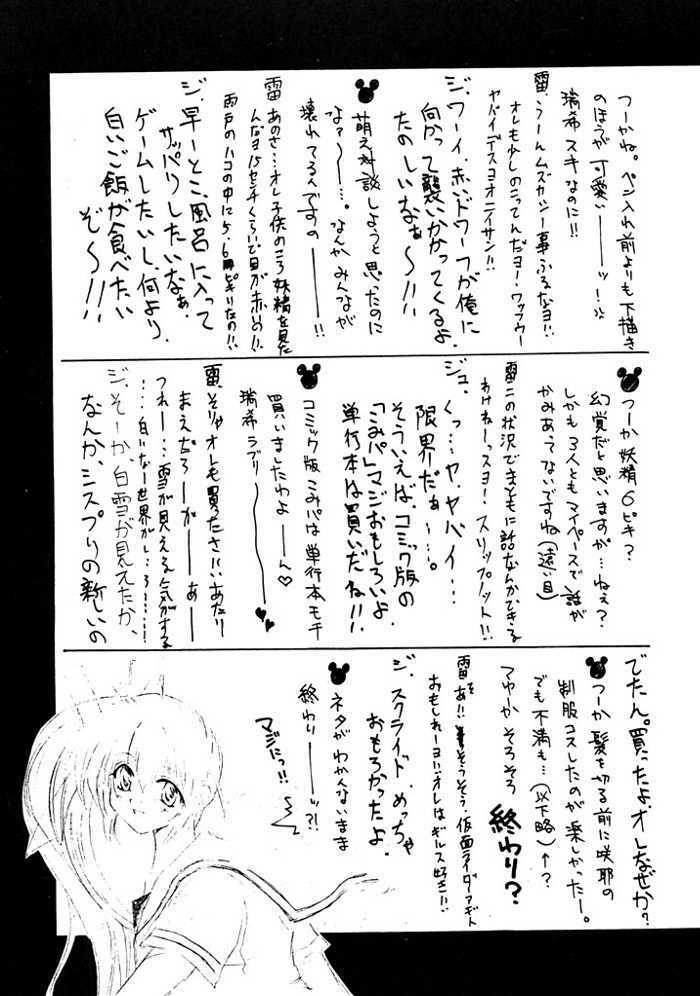 つーかね。ペン入れ前よりも下描き
のほうが可愛いーーッ！
瑞希スキなのに!!
雷、うーんムズカシー事ふるなヨ!!
オレも少しのこってんだヨー！ワップウー
ヤバイデスヨオニイサン!!
ジ、ワーイ、赤いドワーフが俺に
向かって襲いかかってくるよ。
たのしいなぁ〜!!
萌え対談しようと思ったのに
なァ〜ー…。なんかみんなが
壊れてるんですのーーー!!
雷 あのさ…オレ子供のころ妖精を見た
んだヨ15センチくらいで目が赤め!!
雨戸のハコの中に5、6ピキいたの!!
ジ、早ーとこ風呂に入って
サッパリしたいなぁ。
ゲームしたいし、何より、
白いご飯が食べたい
ぞ〜!!
つーか妖精6ピキ？
幻覚だと思いますが…ねぇ？
しかも3人ともマイペースで話が
かみあてないですね(遠い目)
雷 この状況でまともに話なんかできる
わけねーっスよ！スリップノット!!
ジュ、
くっ…ヤ、ヤバイ…
限界だぁー…。
そういえば、コミック版の
「こみパ」マジおもしろいよ。
単行本は買いだね!!
コミック版こみパは単行本モチ
買いましたわよーーん♡
瑞希ラブリー〜〜
雷、そりゃオレも買ったさ!!あたり
まえだろーがーーあーー
つれー…雪が見える気がする
…白いなー世界がし…ろ……
ジ、そーか、白雪が見えたか、
なんか、シスプリの新しいの
でたん。買ったよ。オレなぜか？
つーか髪を切る前に咲耶の
制服コスしたのが楽しかったー。
でも不満も…(以下略)↑？
てゆーかそろそろ
終わり？
雷 あ!!そうそう、仮面ライダーアギト
おもしれーヨ!!オレはギルス好き!!
ジ、スクライド、めっちゃ
おもろかったよ。
ネタがわかんないまま
終わりーーッ?!
マジにっ!!